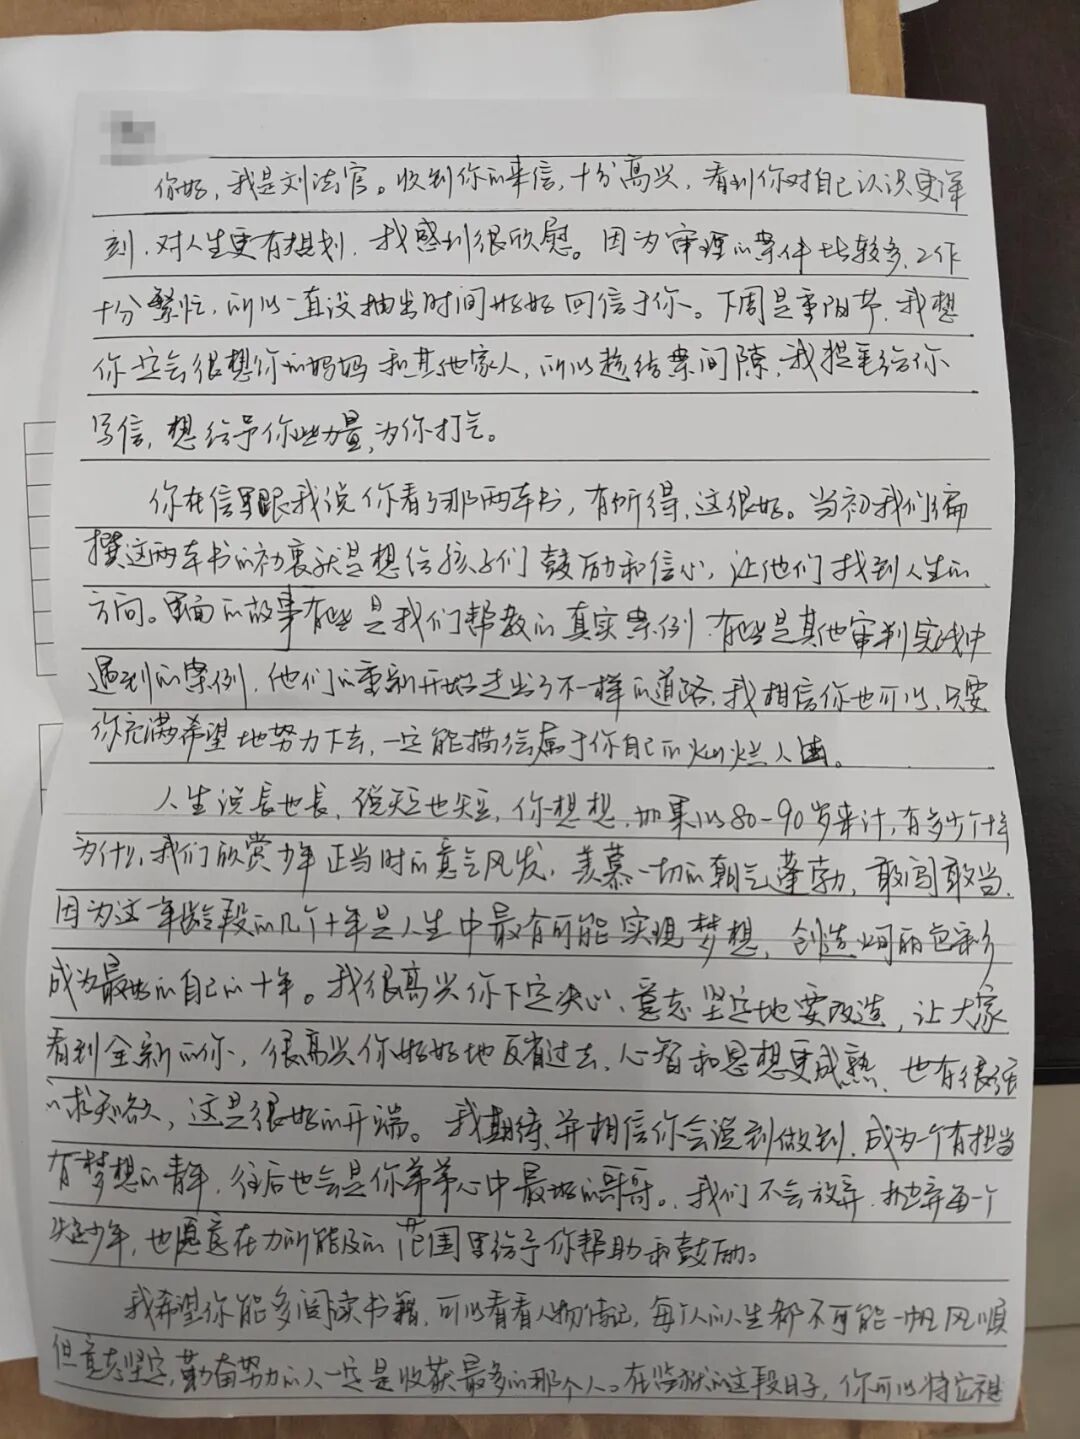 你好，我是刘法官。收到你的来信，十分高兴，看到你对自己认识更深
刻，对人生更有规划，我感到很欣慰。因为审理的案件比较多，工作
十分繁忙，所以一直没抽出时间好好回信于你。下周是重阳节，我想
你定会很想你的妈妈和其他家人，所以趁结案间隙，我提笔给你
写信，想给予你些力量，为你打气。
你在信里跟我说你看了那两本书，有所得，这很好。当初我们编
撰这两本书的初衷就是想给孩子们鼓励和信心，让他们找到人生的
方向。里面的故事有些是我们帮教的真实案例，有些是其他审判实践中
遇到的案例，他们的重新开始走出了不一样的道路，我相信你也可以，只要
你充满希望地努力下去，一定能描绘属于你自己的灿烂人生。
人生说长也长，说短也短，你想想，如果以80-90岁来计，有多少个十年
为什么我们欣赏少年正当时的意气风发，羡慕一切的朝气蓬勃，敢闯敢当，
因为这一年龄段的几个十年是人生中最有可能实现梦想，创造绚丽色彩
成为最好的自己的十年。我很高兴你下定决心、意志坚定地要改造，让大家
看到全新的你，很高兴你好好地反省过去，心智和思想更成熟，也有很强
的求知欲，这是很好的开端。我期待、并相信你会说到做到，成为一个有担当
有梦想的青年，往后也会是你弟弟心中最好的哥哥。我们不会放弃、抛弃每一个
失足少年，也愿意在力所能及的范围里给予你帮助和鼓励。
我希望你能多阅读书籍，可以看看人物传记，每个人的人生都不可能一帆风顺
但意志坚定，勤奋努力的人一定是收获最多的那个人。在监狱的这段日子，你可以将它